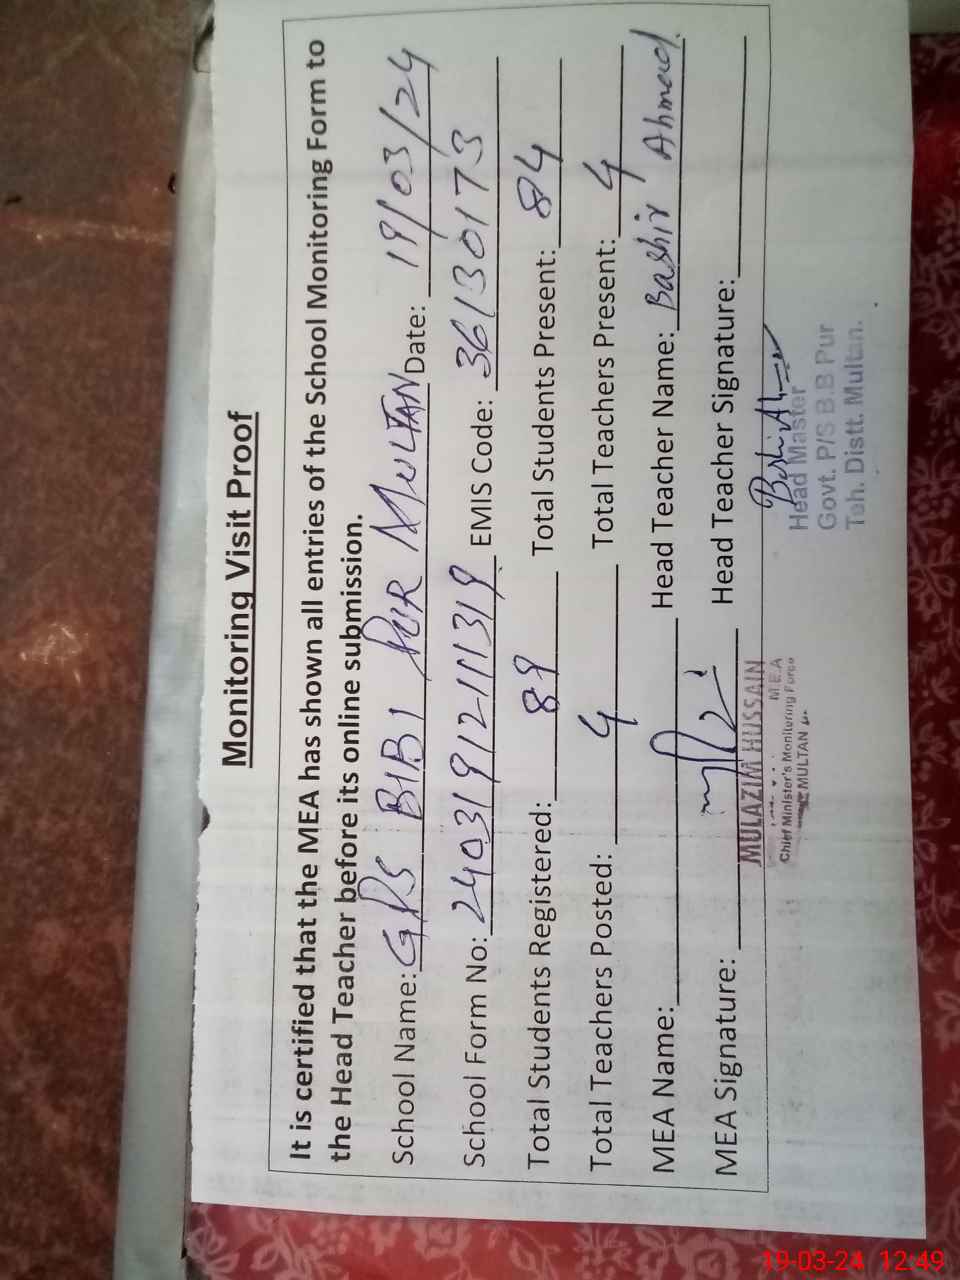 Monitoring Visit Proof
It is certified that the MEA has shown all entries of the School Monitoring Form to
the Head Teacher before its online submission.
School Name: GPS BIBI PUR MULTAN Date: 19/03/24
School Form No: 24031912111319 EMIS Code: 36130173
Total Students Registered: 89 Total Students Present: 84
Total Teachers Posted: 4 Total Teachers Present: 4
MEA Name: Head Teacher Name: Bashir Ahmad
MEA Signature: Head Teacher Signature:
MULAZIM HUSSAIN
M.E.A
Chief Minister's Monitoring Force
MULTAN
Head Master
Govt. P/S B.B Pur
Teh. Distt. Multan.
19-03-24 12:49